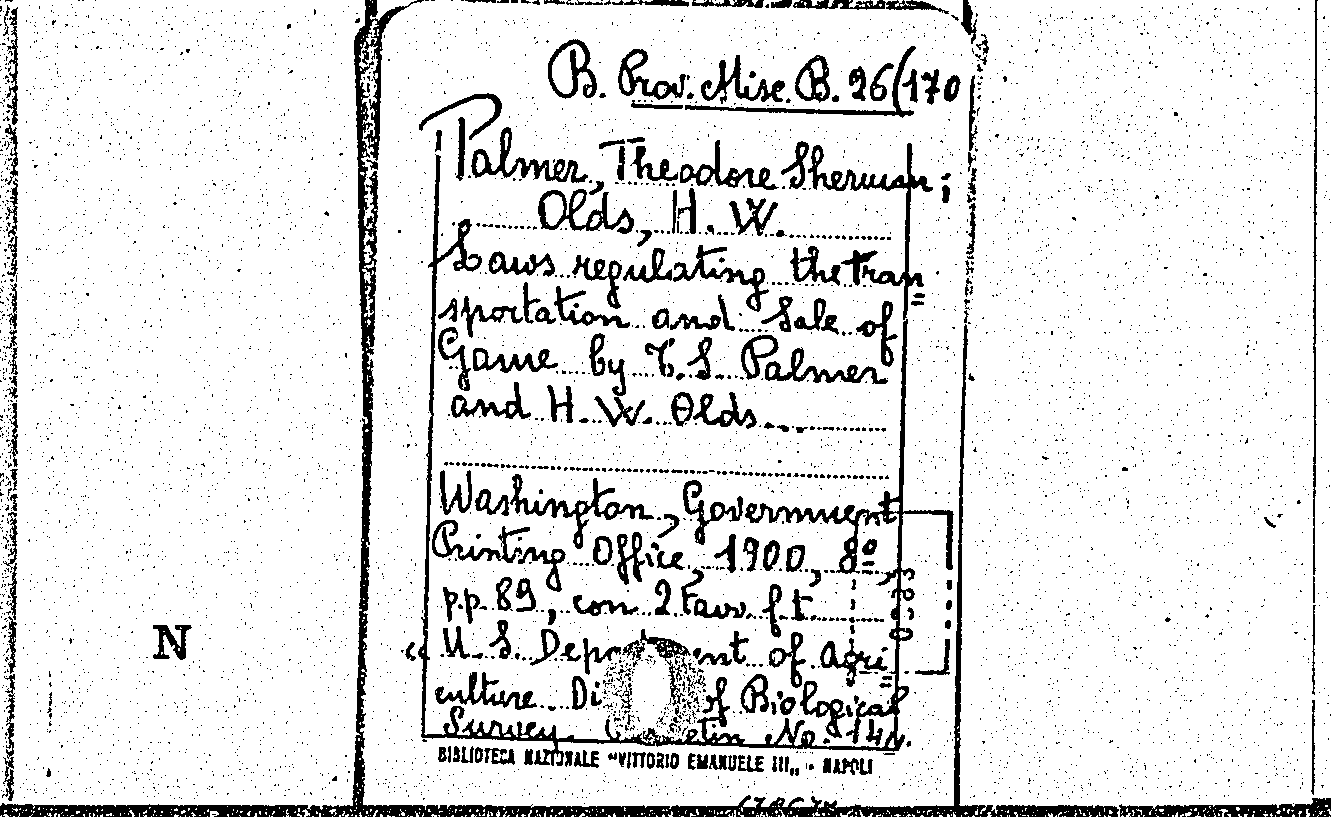 B. Prov. Misc. B. 26(170
Palmer, Theodore Sherman;
Olds, H. W.
Laws regulating the Tran=
sportation and Sale of
Game by T. S. Palmer
and H. W. Olds...
Washington, Government
Printing Office, 1900, 8º,
pp. 89, con 2 tavv. f. t.
" U. S. Depa ent of Agri=
culture. Di of Biological
Survey. etin No. 14".
BIBLIOTECA NAZIONALE "VITTORIO EMANUELE III" - NAPOLI
N